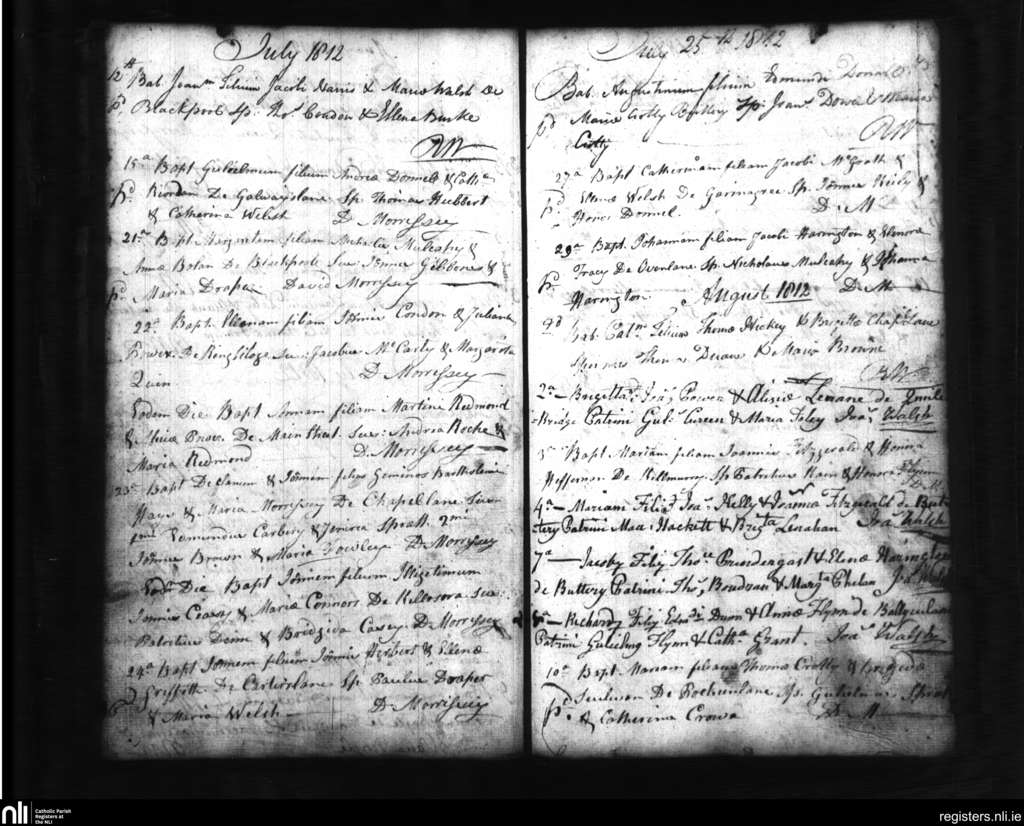 July 1812
12th Bat. Joan filium Jacobi Harris & Maria Walsh De
pd Blackpool Sp: Thos Condon & Ellena Burke
RW
15a Bapt Gulielmum filium Andrea Donnell & Catha
pd Riordan De Galwayslane Sp. Thomas Hubbert
& Catharina Welsh D Morrissey
21a Bapt Margaretam filiam Michalis Mulcahy &
Anna Bolan De Blackpoole Sus: Joannes Gibbons &
pd Maria Draper David Morrissey
22a Bapt. Elleanam filiam Joannis Condon & Juliana
Power De Sus: Jacobus McCarty & Margarita
Quin D Morrissey
Eodem Die Bapt Annam filiam Martini Redmond
& De Main Street. Sus: Andrea Roche &
Maria Redmond D. Morrissey
23a Bapt & filios Geminos Bartholomei
Hays & Maria Morrissey De Chapellane Sus
primi Edmundus Carbery & Spratt 2mi
Joannes Brown & Maria D. Morrissey
Eodm Die Bapt Joannem filium Illigitimum
Joannis Casey & Maria Connors De Killosora Sus:
& Bridgida Casey D. Morrissey
24a Bapt Joannem filium Joannis Herbert & Elena
Griffith De Carterslane Sp Paulus Draper
pd & Maria Welsh D. Morrissey
July 25th 1812
Bat. Augustinum filium Edmundi Donald
pd Maria Cotty Buttery Sp: Joans Dowd & Maria
Cotty RW
27a Bapt Catherinam filiam Jacobi McGrath &
pd Elena Welsh De Garrnagree Sp. Joannes Heily &
Honor Donnel D. M
29a Bapt. Johannam filiam Jacobi Harrington & Elenora
Tracy De Ovenlane Sp. Nicholaus Mulcahy & Johanna
pd Harrington D. M
August 1812
2d Bab. Catm filiam Thoma Hickey & Brigitta Chap. Lane
& Maria Browne
RW
2a - Brigitta Joas Power & Alisia Lenane de
Bridge Patrini Gul. Green & Maria Foley Joas Walsh
3a Bapt Mariam filiam Joannis Fitzgerald & Honora
Heffernan De Killmurry Sp Patritius Kain & Honora
D. M
4a - Mariam Filia Joas Kelly & Joanna Fitzgerald de But-
tery Patrini Mau: Hackett & Brigta Lenahan Joas Walsh
7a - Jacoby Fily Thos Prendergast & Elena Harington
de Buttery Patrini Thos Boudran & Marya Phelan Joas Walsh
- Richardy Fily Edmdi Dunn & Anna Flynn de Ballyculane
Patrini Gulielmg Flynn & Catha Grant. Joas Walsh
10a Bapt Mariam filiam Thoma Crotty & Brigida
pd Sullivan De Rocheslane Sp. Gulielmus Sprat
& Catherina Crowe D. M
nli
Catholic Parish
Registers at
the NLI
registers.nli.ie